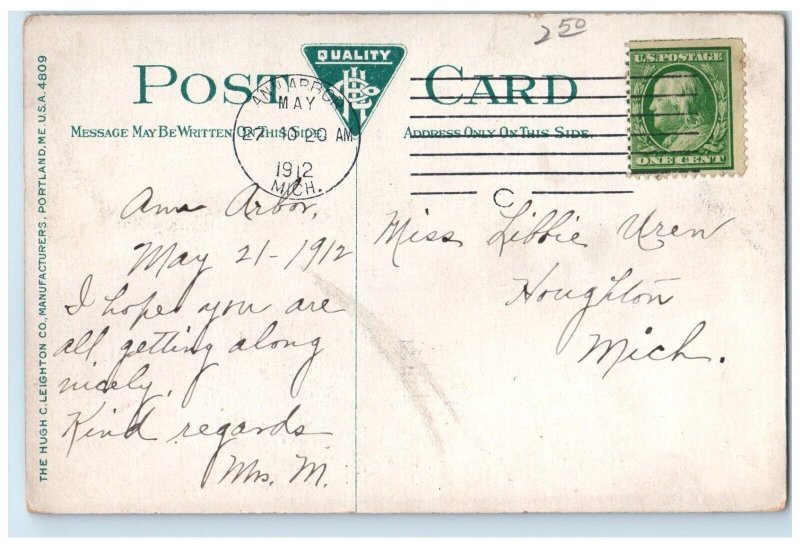 2.50
QUALITY
POST CARD
U.S. POSTAGE
ONE CENT
MESSAGE MAY BE WRITTEN ON THIS SIDE
ADDRESS ONLY ON THIS SIDE.
ANN ARBOR
MAY
27 10-20 AM
1912
MICH.
C
THE HUGH C. LEIGHTON CO., MANUFACTURERS, PORTLAND, ME. U.S.A. 4809
Ann Arbor,
May 21-1912
I hope you are
all getting along
nicely.
Kind regards
Mrs. M.
Miss Libbie Uren
Houghton
Mich.